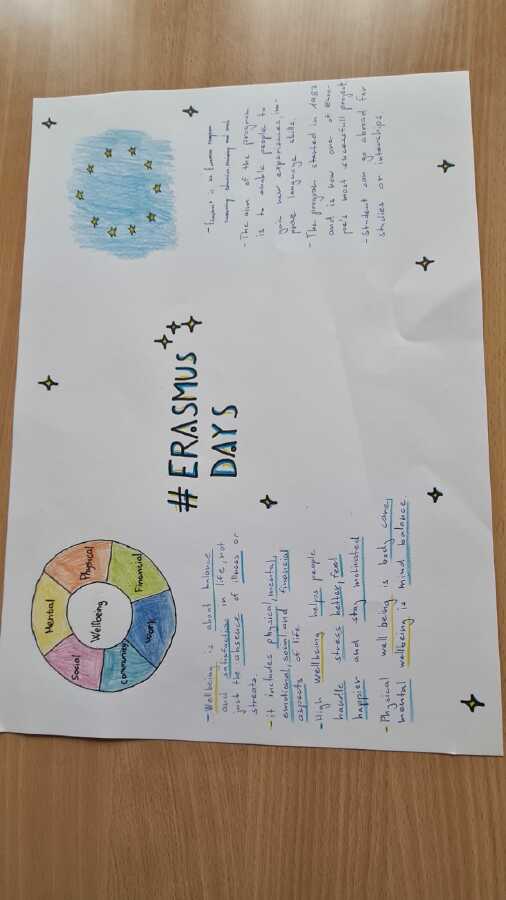 Mental
Physical
Financial
Work
community
Social
Wellbeing
- Wellbeing is about balance
and satisfaction in life, not
just the absence of illness or
- it includes physical, mental,
emotional, social and financial
aspects of life
- High wellbeing helps people
handle stress better, feel
happier and stay motivated
- Physical well being is body care,
mental wellbeing is mind balance
#ERASMUS
DAYS
- The aim of the program
is to enable people to
gain new experiences, im-
prove language skills.
- The program started in 1987
and is now one of Euro-
pe's most successfull project
- Student can go abroad for
studies or internships